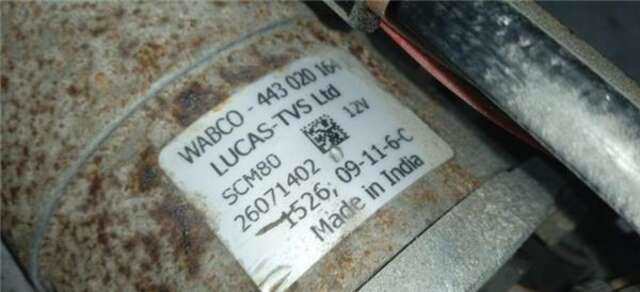 WABCO - 443 020 164
LUCAS-TVS Ltd
12V
SCM80
26071402
1526; 09-11-6-C
Made in India